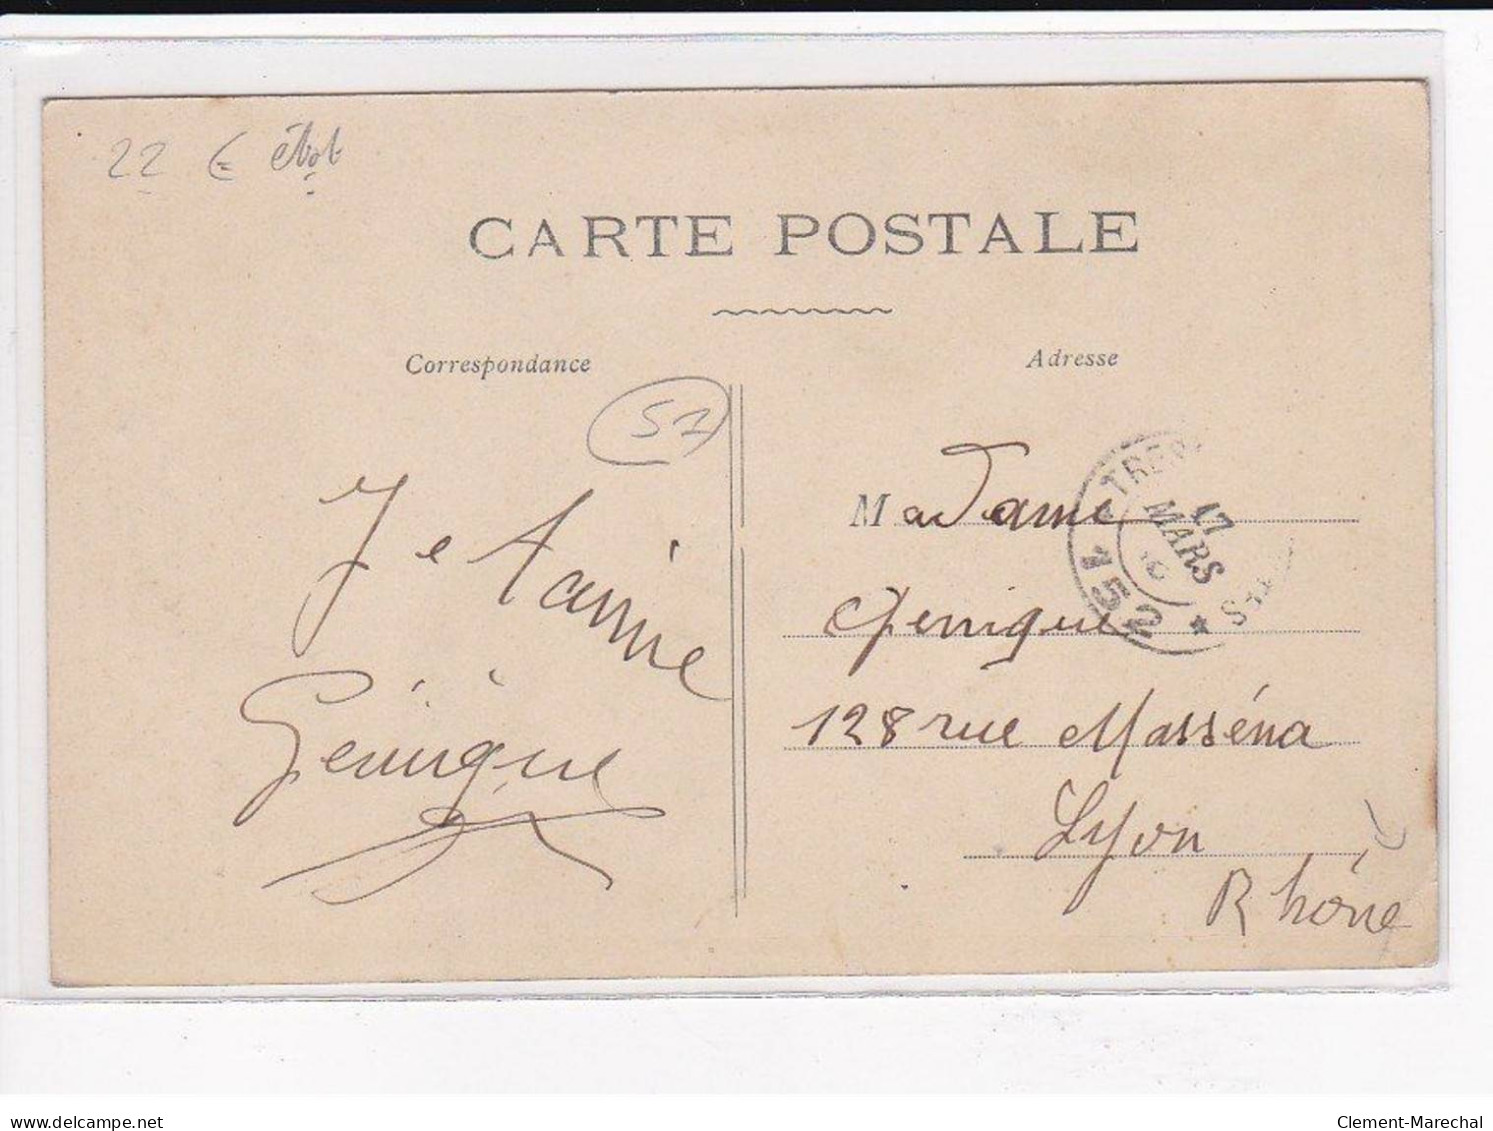 22 € état
CARTE POSTALE
Correspondance
Adresse
51
Je t'aime
Génique
Madame
Génique
128 rue Masséna
Lyon
Rhône
17
MARS
152
delcampe.net
Clement-Marechal